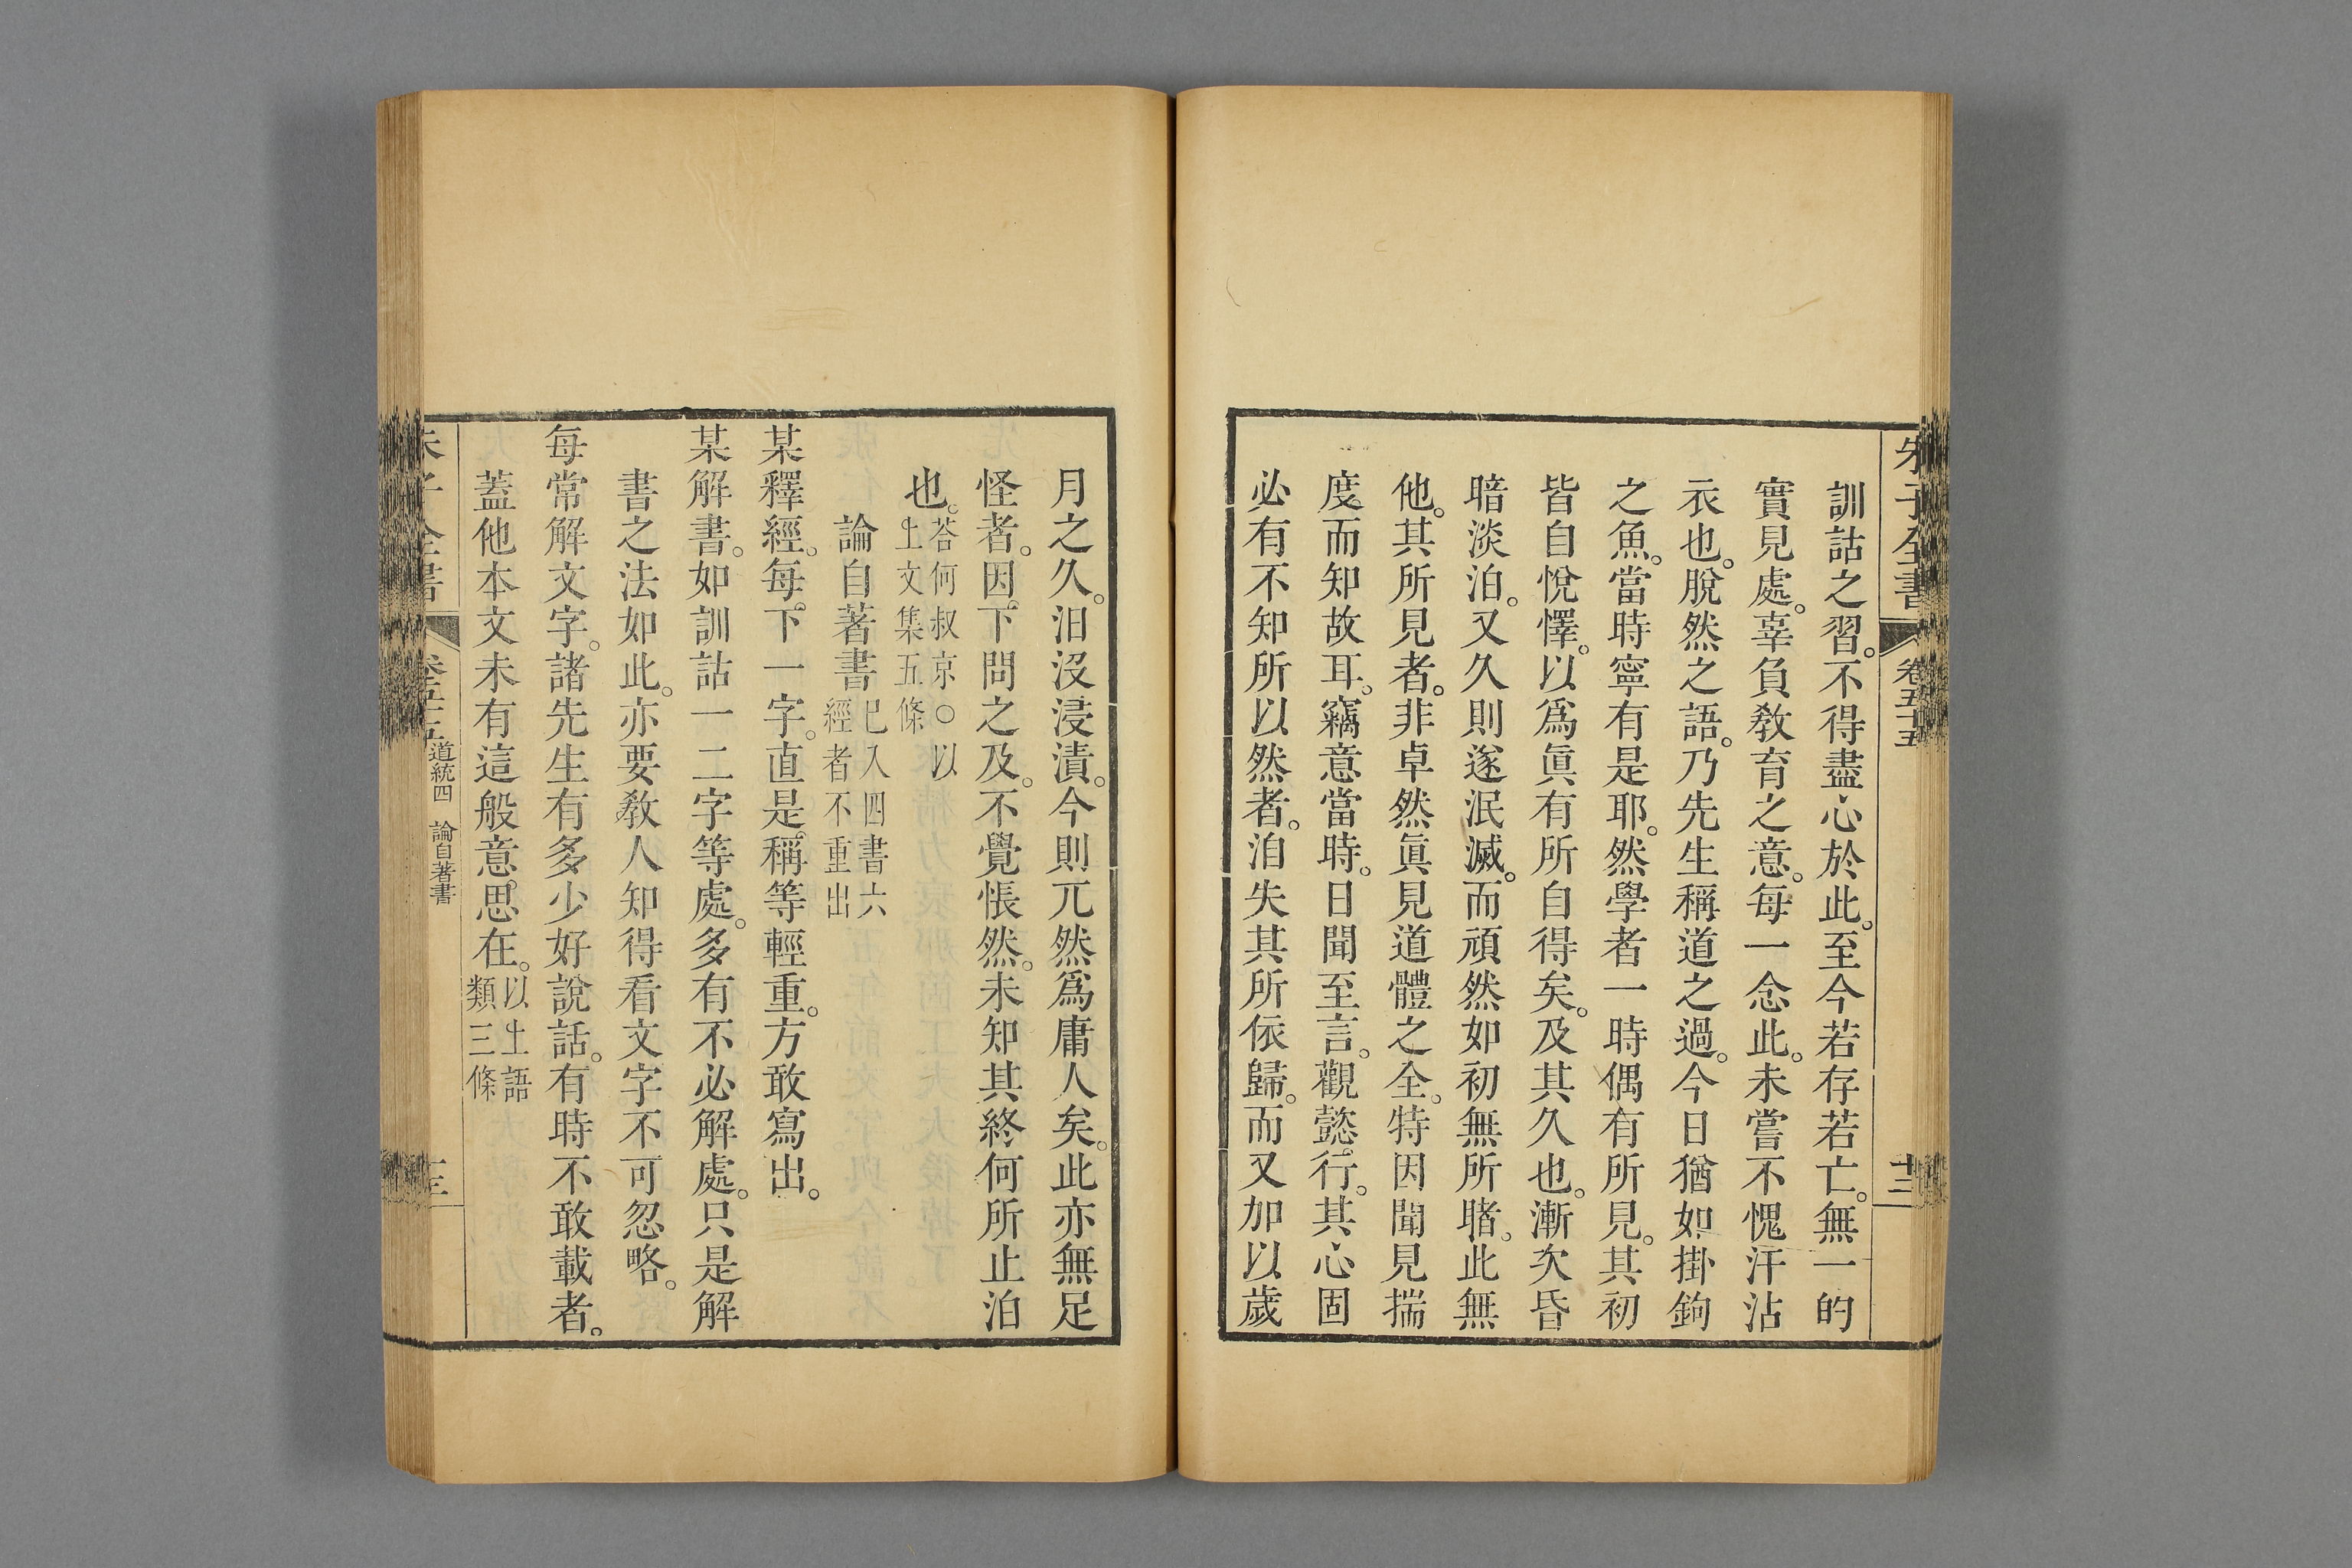 朱子全書 卷五十五 十三
訓詁之習。不得盡心於此。至今若存若亡。無一的
實見處。辜負教育之意。每一念此。未嘗不愧汗沾
衣也。脫然之語。乃先生稱道之過。今日猶如掛鉤
之魚。當時寧有是耶。然學者一時偶有所見。其初
皆自悅懌。以爲眞有所自得矣。及其久也。漸次昏
暗淡泊。又久則遂泯滅。而頑然如初無所睹。此無
他。其所見者。非卓然眞見道體之全。特因聞見揣
度而知故耳。竊意當時。日聞至言。觀懿行。其心固
必有不知所以然者。洎失其所依歸。而又加以歲
月之久。汨沒浸漬。今則兀然爲庸人矣。此亦無足
怪者。因下問之及。不覺悵然。未知其終何所止泊
也。答何叔京○以
上文集五條
論自著書已入四書六
經者不重出
某釋經。每下一字。直是稱等輕重。方敢寫出。
某解書。如訓詁一二字等處。多有不必解處。只是解
書之法如此。亦要教人知得看文字不可忽略。
每常解文字。諸先生有多少好說話。有時不敢載者。
蓋他本文未有這般意思在。以上語
類三條
朱子全書 卷五十五 道統四 論自著書 十三